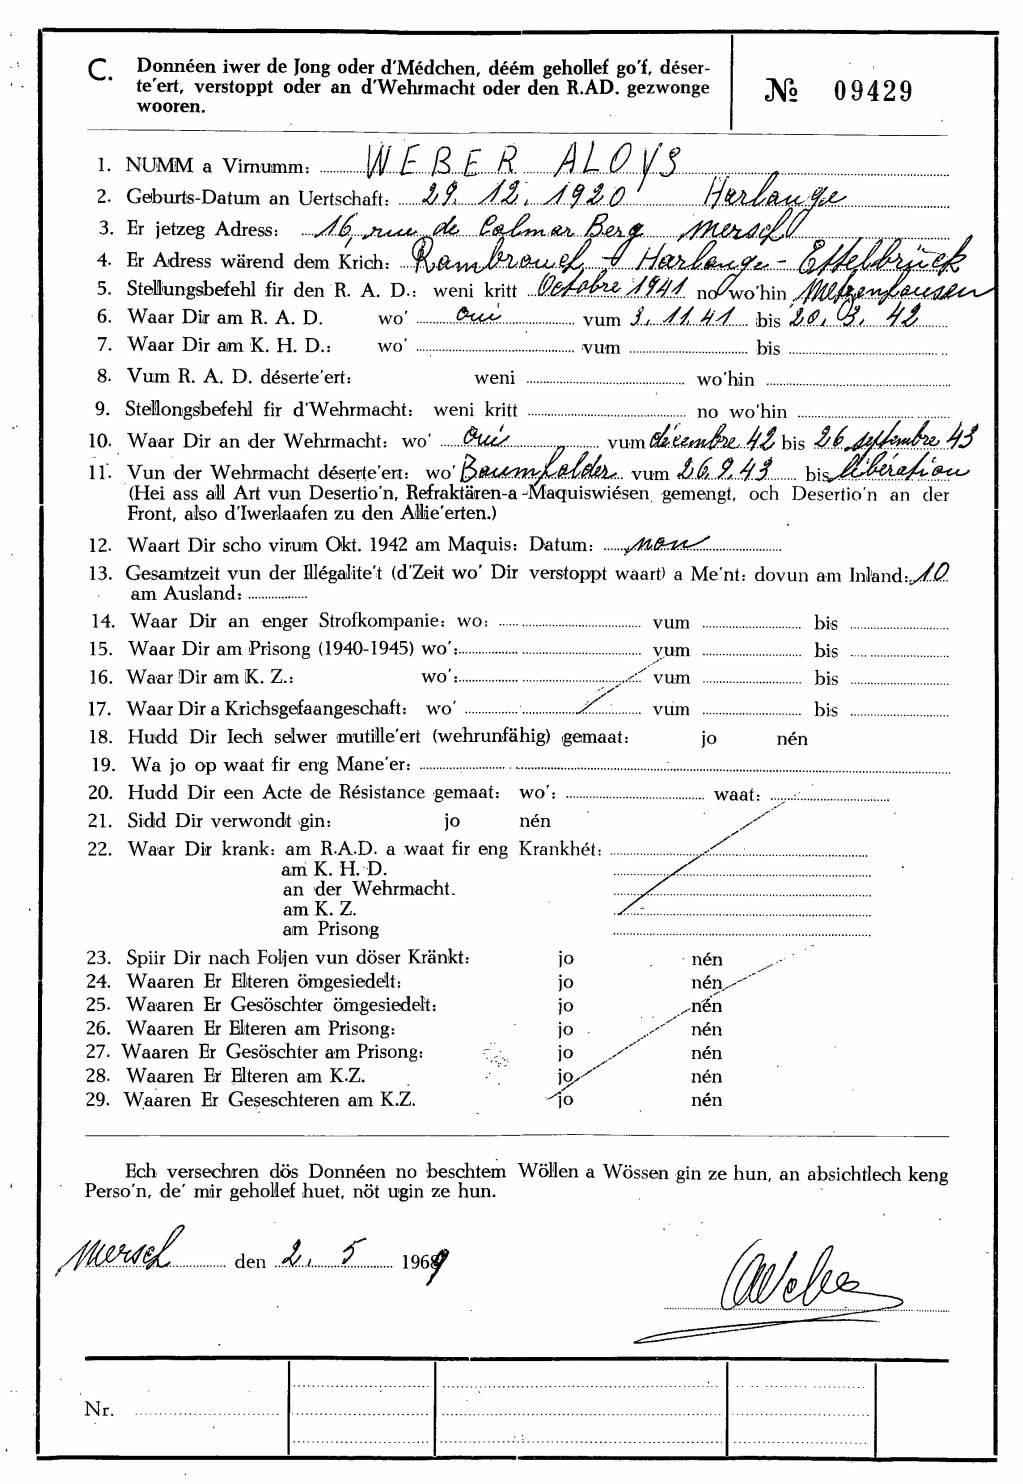 C. Donnéen iwer de Jong oder d'Médchen, déém gehollef go'f, déser-
te'ert, verstoppt oder an d'Wehrmacht oder den R.AD. gezwonge
wooren.
№ 09429
1. NUMM a Virnumm: WEBER ALOYS
2. Geburts-Datum an Uertschaft: 29. 12. 1920 Harlange
3. Er jetzeg Adress: 16, rue de Colmar Berg Mersch
4. Er Adress wärend dem Krich: Rambrouch - Harlange - Ettelbrück
5. Stellungsbefehl fir den R. A. D.: weni kritt Octobre 1941 no wo'hin Metzenhausen
6. Waar Dir am R. A. D. wo' oui vum 3. 11. 41 bis 20. 3. 42
7. Waar Dir am K. H. D.: wo' vum bis
8. Vum R. A. D. déserte'ert: weni wo'hin
9. Stellongsbefehl fir d'Wehrmacht: weni kritt no wo'hin
10. Waar Dir an der Wehrmacht: wo' oui vum décembre 42 bis 26 septembre 43
11. Vun der Wehrmacht déserte'ert: wo' Baumholder vum 26.9.43 bis libération
(Hei ass all Art vun Desertio'n, Refraktären-a-Maquiswiésen gemengt, och Desertio'n an der
Front, also d'Iwerlaafen zu den Allie'erten.)
12. Waart Dir scho virum Okt. 1942 am Maquis: Datum: non
13. Gesamtzeit vun der Illégalite't (d'Zeit wo' Dir verstoppt waart) a Me'nt: dovun am Inland: 10
am Ausland:
14. Waar Dir an enger Strofkompanie: wo: vum bis
15. Waar Dir am Prisong (1940-1945) wo': vum bis
16. Waar Dir am K. Z.: wo': vum bis
17. Waar Dir a Krichsgefaangeschaft: wo' vum bis
18. Hudd Dir Iech selwer mutille'ert (wehrunfähig) gemaat: jo nén
19. Wa jo op waat fir eng Mane'er:
20. Hudd Dir een Acte de Résistance gemaat: wo': waat:
21. Sidd Dir verwondt gin: jo nén
22. Waar Dir krank: am R.A.D. a waat fir eng Krankhét:
am K. H. D.
an der Wehrmacht.
am K. Z.
am Prisong
23. Spiir Dir nach Foljen vun döser Kränkt: jo nén
24. Waaren Er Elteren ömgesiedelt: jo nén
25. Waaren Er Gesöschter ömgesiedelt: jo nén
26. Waaren Er Elteren am Prisong: jo nén
27. Waaren Er Gesöschter am Prisong: jo nén
28. Waaren Er Elteren am K.Z. jo nén
29. Waaren Er Geseschteren am K.Z. jo nén
Ech versechren dös Donnéen no beschtem Wöllen a Wössen gin ze hun, an absichtlech keng
Perso'n, de' mir gehollef huet, nöt ugin ze hun.
Mersch den 2. 5 1969
AWeber
Nr.